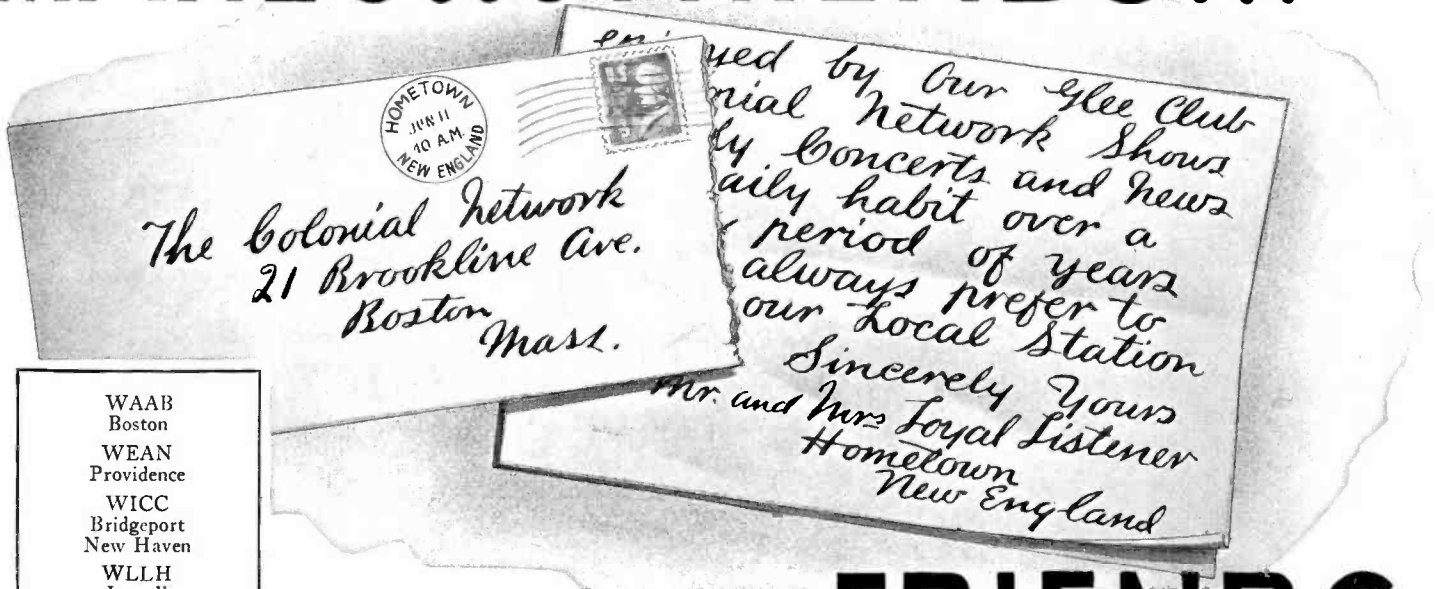 HOMETOWN
JUN 11
10 A.M.
NEW ENGLAND
The Colonial Network
21 Brookline Ave.
Boston
Mass.
by Our Glee Club
Network Shows
Concerts and News
habit over a
period of years
always prefer to
our Local Station
Sincerely Yours
Mr. and Mrs Loyal Listener
Hometown
New England
WAAB
Boston
WEAN
Providence
WICC
Bridgeport
New Haven
WLLH